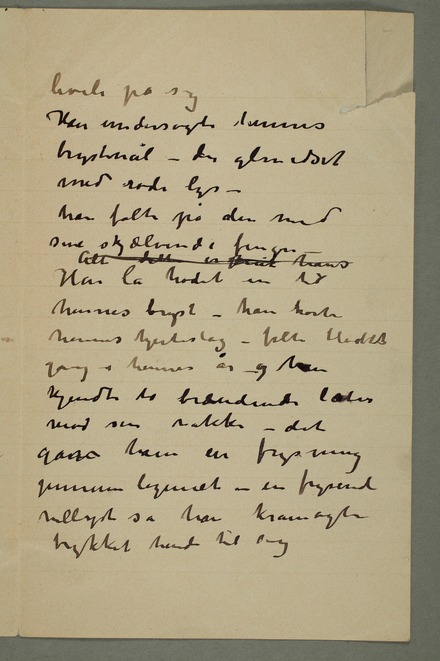 hvile på sig
Han undersøgte hennes
brystnål – den glinsedset
med røde lys –
han følte på den med
sine skjælvende fingre –
Alt dette er hans
Han la hodet en tid
hennes bryst – han hørte
hennes hjerteslag – følte blodets
gang i hennes år og han
kjendte to brændende læber
mod sin nakke – det
gav ham en frysning
gjennem legemet – en frysende
vellyst så han krampagtig
trykket hende til sig